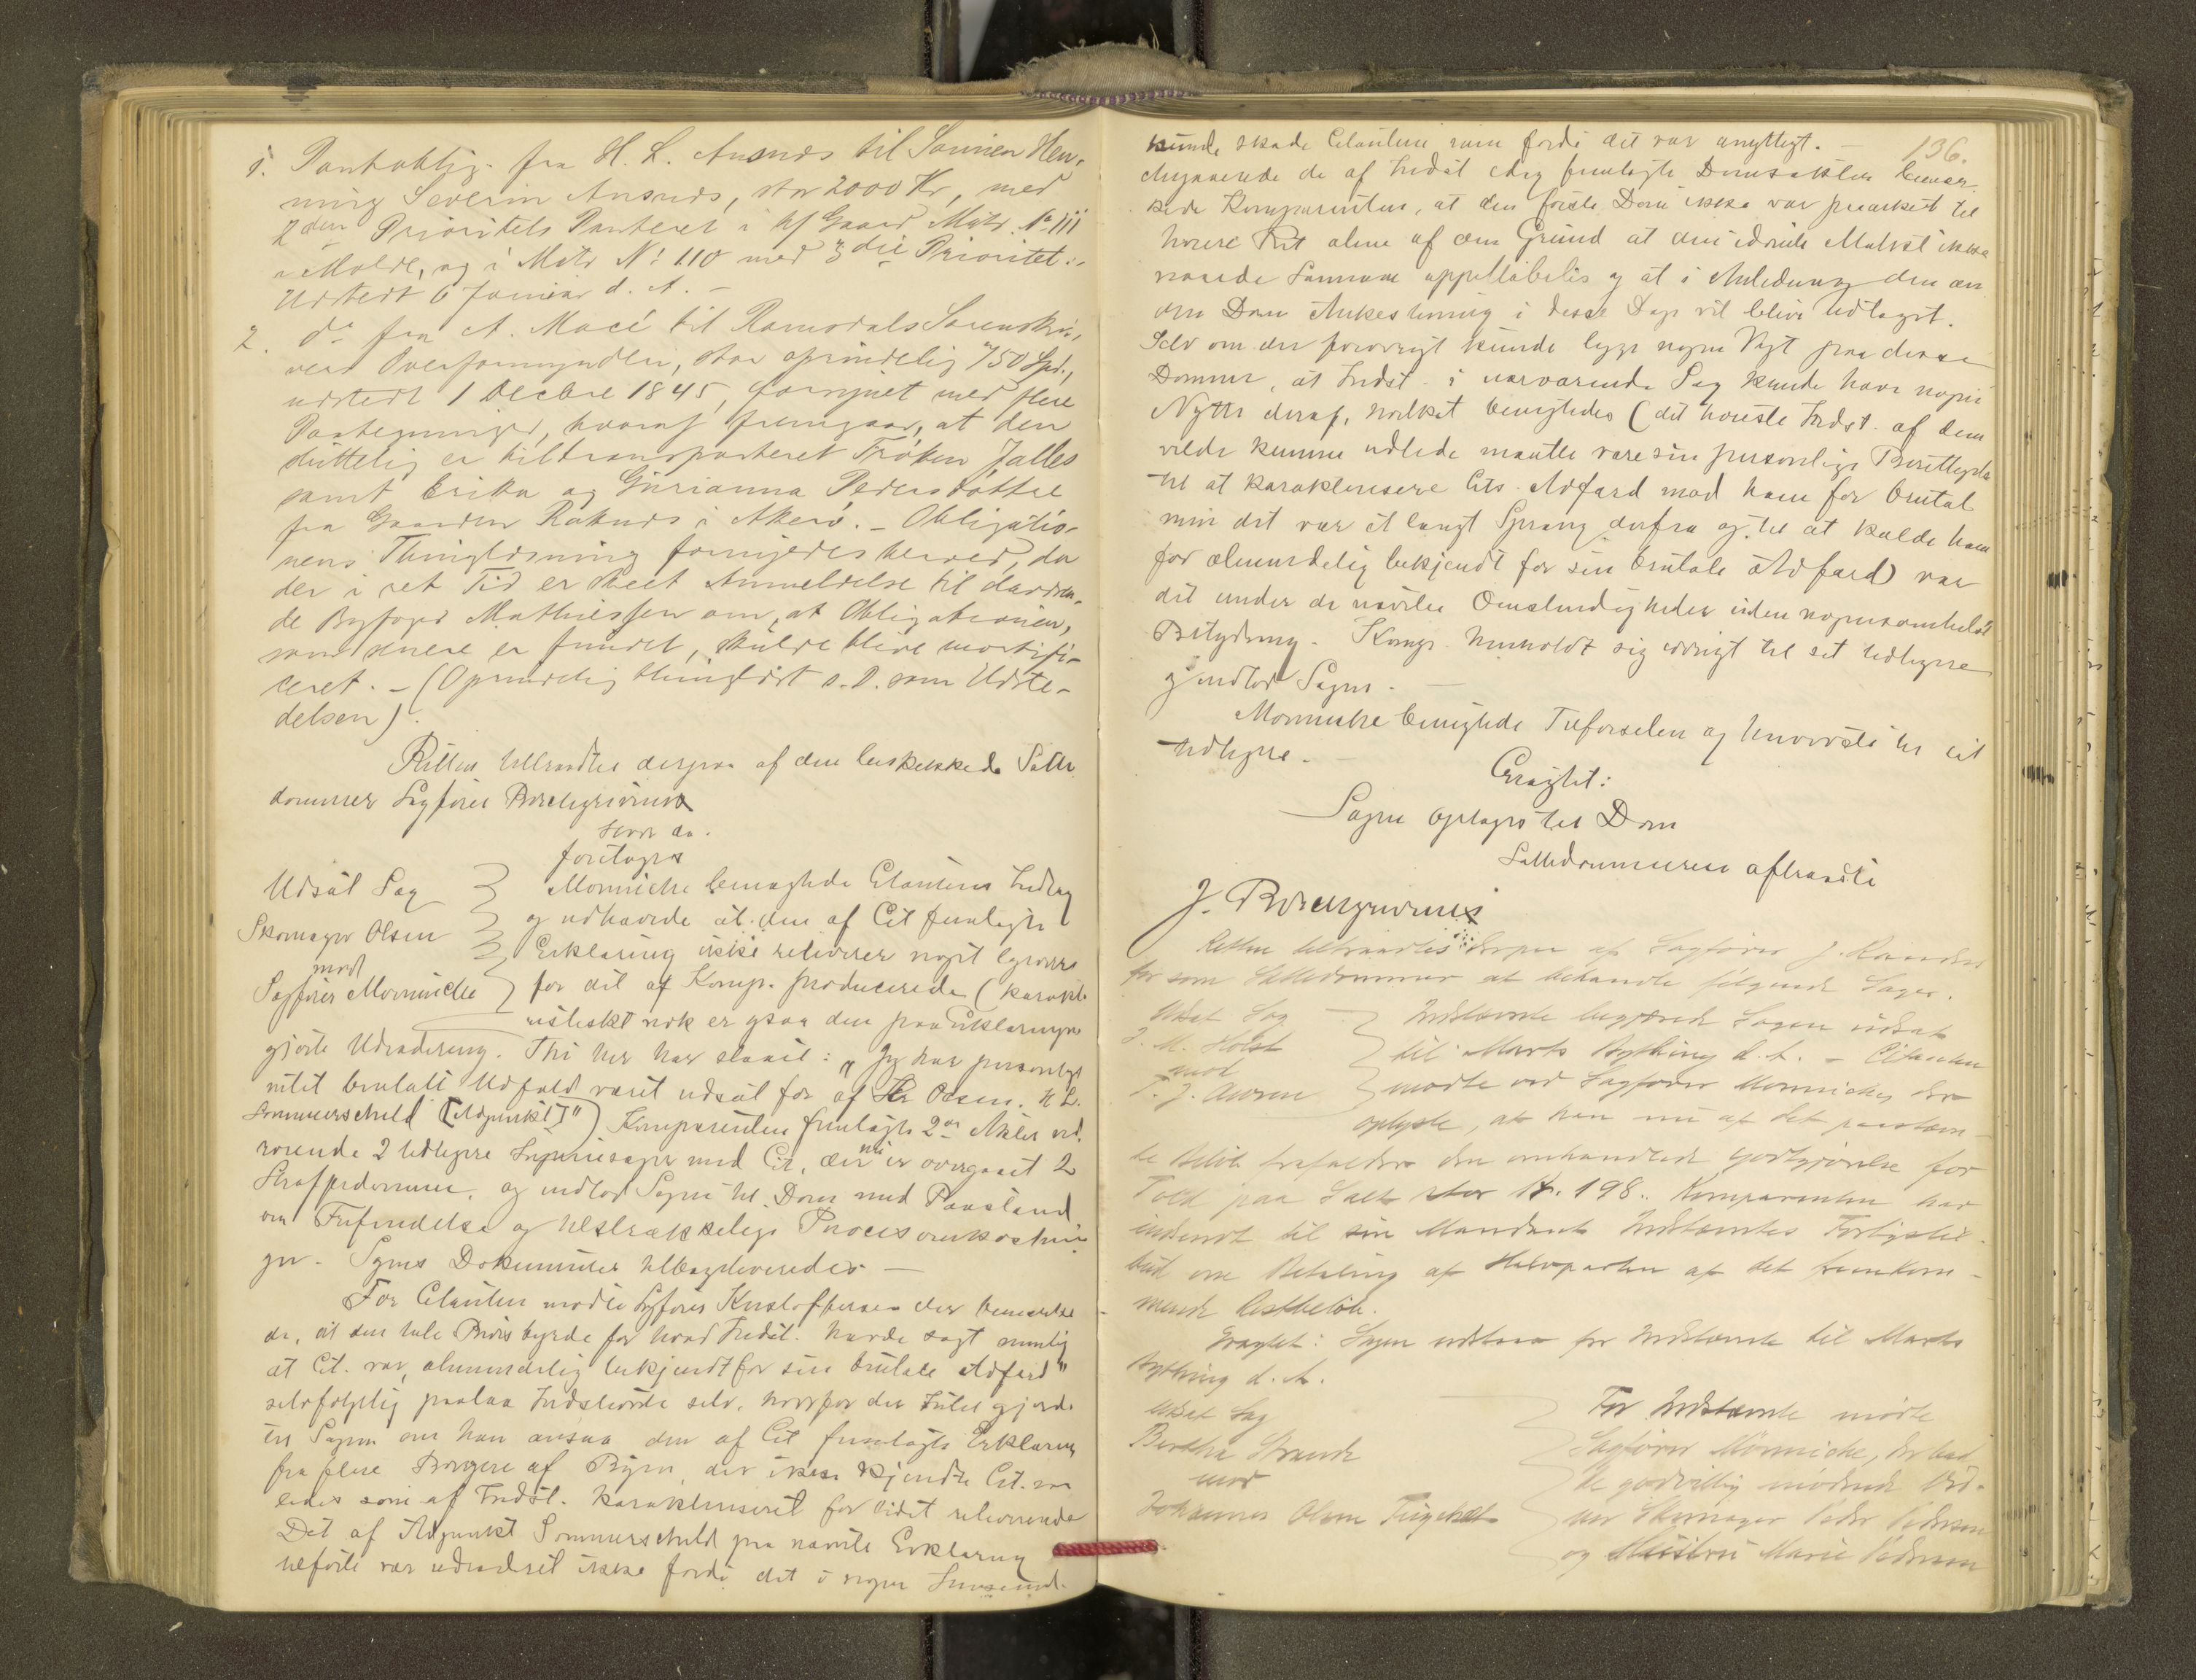 1. Pantoblig. fra H. L. Ansnes til Sønnen Hen-
ning Severin Ansnes, stor 2000 Kr, med
2den Prioritets Panteret i hf Gaard Matr. No 111
i Molde, og i Matr No 110 med 3die Prioritet.-
Udstedt 6 Januar d. A. -
2. do fra A. Macé til Romsdals Sorenskri-
veri Overformynderi, stor oprindelig 750 Spd.,
udstedt 1 Decbre 1845, fornyet med flere
Paategninger, hvoraf fremgaar, at den
sluttelig er tiltransporteret Frøken Jalles
samt Erika og Gurianna Pedersdotter
fra Gaarden Røknes i Akerø. - Obligatio-
nens Thinglæsning fornyedes herved, da
der i ret Tid er skeet Anmeldelse til daværen-
de Byfoged Mathiessen om, at Obligationen,
som senere er fundet, skulde blive mortifi-
ceret. - (Oprindelig thinglyst s. D. som Udste-
delsen).
Retten tiltraadtes derpaa af den beskikkede Sætte
dommer Sagfører Borchgrevink
hvor da
foretoges
Udsat Sag
Skomager Olsen
mod
Sagfører Monniche
Monniche benegtede Citantens Indlæg
og udhævede at den af Cit fremlagte
Erklæring ikke releverer noget
for det af Komp. producerede (karakte
ristiskt nok er ogsaa den paa Erklæringen
gjorte Udradering. Thi her har staaet: "Jeg har personligt
intet brutalt Udfald været udsat for af Hr Olsen. H L.
Sommerschield [Adjunkt]") Komparenten fremlagde 2de Akter ved-
rørende 2 tidligere Injuriesager mod Cit, der nu er overgaaet 2
Straffedomme, og indlod Sagen til Dom med Paastand
om Frifindelse og tilstrækkelige Procesomkostnin
ger. Sagens Dokumenter tilbageleveredes -
For Citanten mødte Sagfører Kristoffersen der bemærke
de, at den hele Bevisbyrde for hvad Indst. havde sagt nemlig
at Cit. var "almindelig bekjendt for sin brutale Adfærd"
selvfølgelig paalaa Indstevnte selv, hvorfor det Intet gjorde
til Sagen om han ansaa den af Cit fremlagte Erklæring
fra flere Borgere af Byen, der ikke kjendte Cit. saa
ledes som af Indst. karakteriseret for lidet releverende
Det af Adjunkt Sommerschield paa nævnte Erklæring
tilførte var udraderet ikke fordi det i nogen Henseende
136.
kunde skade Citanten men fordi det var unyttigt. -
de af Indst. idag fremlagte Domsakter bemær-
kede Komparenten, at den første Dom ikke var paaanket til
høiere Ret alene af den Grund at den idømte Mulkt ikke
naaede Summa appellabilis og at i Anledning den an
den Dom Ankestevning i disse Dage vil blive udtaget.
Selv om der forøvrigt kunde lægges nogen Vægt paa disse
Domme, at Indst. i nærværende Sag kunde have nogen
Nytte deraf, hvilket benegtedes (det høieste Indst. af dem
vilde kunne udlede maatte være sin personlige Berettigelse
til at karakterisere Cits. Adfærd mod ham for brutal
men det var et langt Sprang derfra og til at kalde ham
for almindelig bekjendt for sin brutale Adfærd) var
det under de nævnte Omstændigheder uden nogensomhelst
Betydning. Komp. henholdt sig øvrigt til sit tidligere
og indlod Sagen. -
Monniche benegtede Tilførselen og henviste til sit
tidligere. -
Eragtet:
Sagen optages til Dom
Sættedommeren aftraadte
J. Borchgrevink
Retten tiltraadtes derpaa af Sagfører J.
for som Sættedommer at behandle følgende Sager.
Udsat Sag
J. M. Holst
mod
Indstævnte begjærede Sagen udsat
til Marts Bything d. A. - Citanten
mødte ved Sagfører Monniche, der
oplyste, at han nu af det paastævn-
te Beløb frafalder den omhandlede Godtgjørelse for
Told paa Salt stor Kr. 198.. Komparenten har
indsendt til sin Mandant Indstævntes Forligstil-
bud om Betaling af Halvparten af det fremkom-
mende Restbeløb.
Eragtet: Sagen udstaar for Indstævnte til Marts
Bything d. A.
Udsat Sag
Berthe Strande
mod
Johannes Olsen
For Indstævnte mødte
Sagfører Monniche, der bad
de godvillig mødende Vid-
ner Skomager Peder Pedersen
og Hustru Marie Pedersen